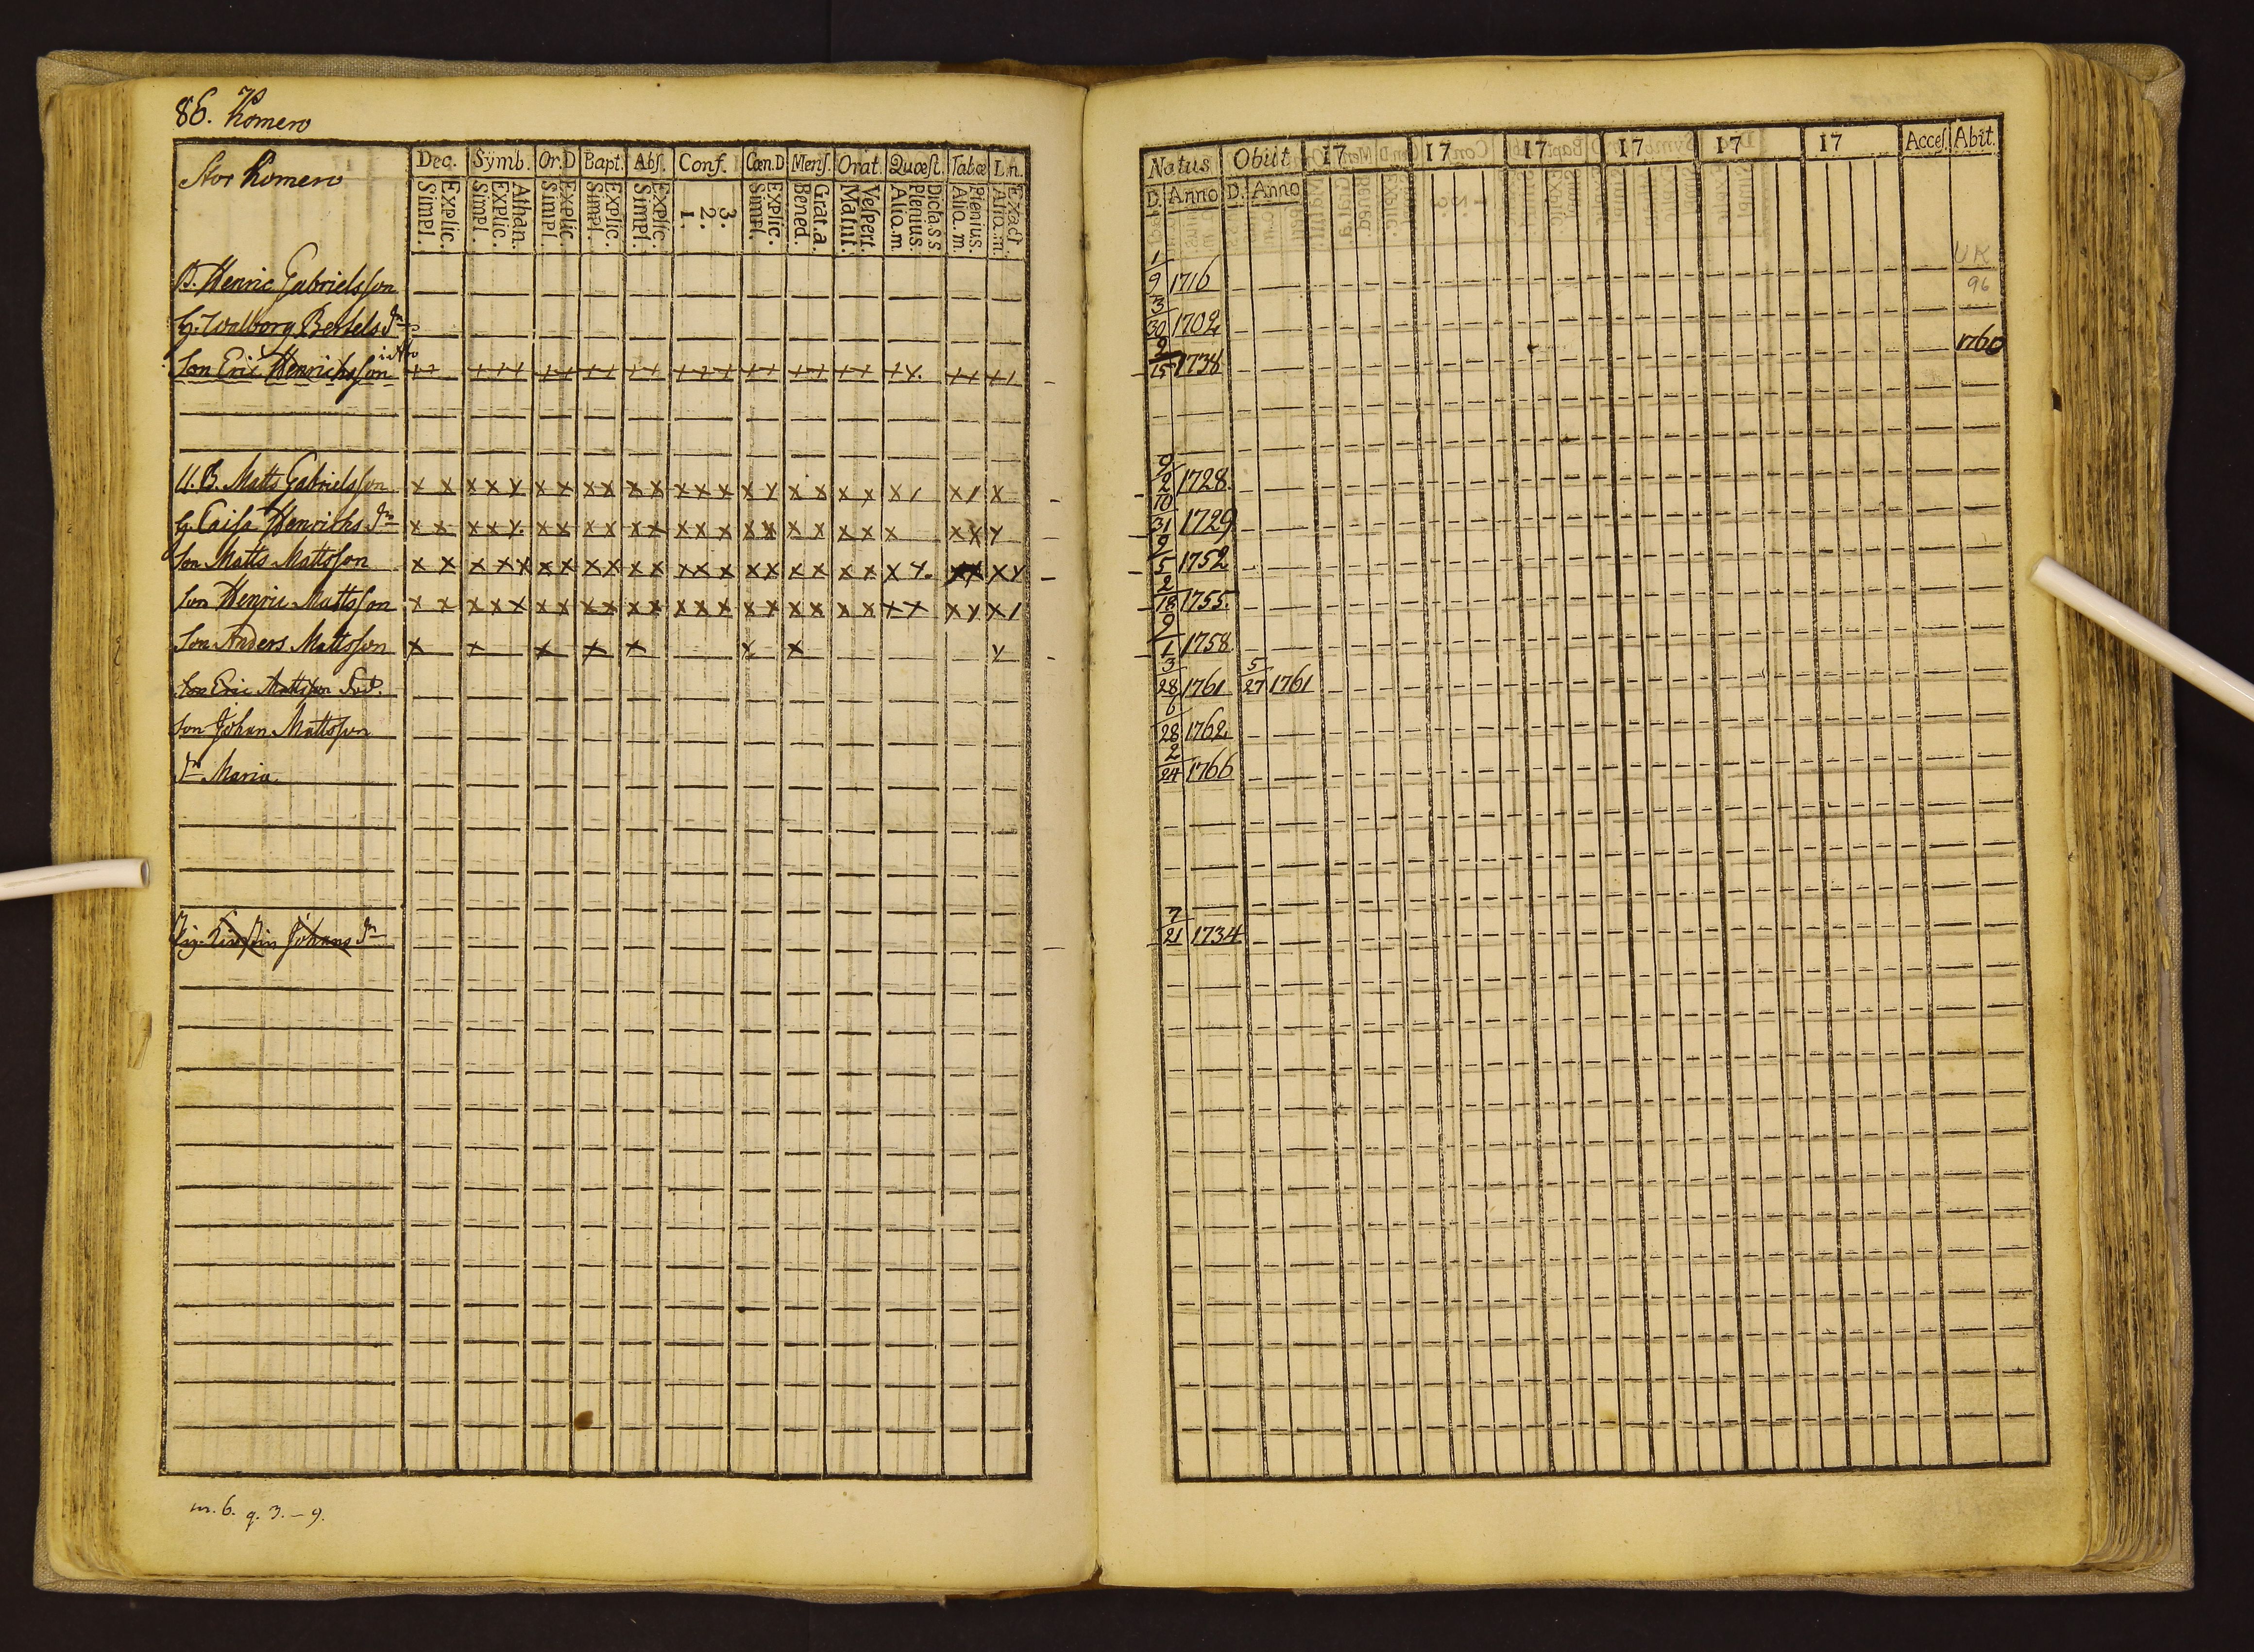 86. Komero
Stor Komero
Dec. Symb. Or.D Bapt. Abs. Conf. Cœn.D Mens. Orat. Quæst. Tabæ L.n.
Simpl. Explic. Simpl. Explic. Athan. Simpl. Explic. Simpl. Explic. Simpl. Explic. 1. 2. 3. Simpl. Explic. Bened. Grat.a. Matut. Vespert. Alio.m. Plenius. Dicta s s. Alio.m. Plenius. Alio.m. Exact
B. Henric Gabrielsson
H. Walborg Bertels dr
Son Eric Henrichsson
U.B. Matts Gabrielsson x x x x y x x x x x x x x x x y x x x x x / x / x
H. Caisa Henrichs dr x x x x y x x x x x x x x x x x x x x x x x x y
Son Matts Mattsson x x x x x x x x x x x x x x x x x x x x x y x y
Son Henric Mattsson x x x x x x x x x x x x x x x x x x x x x x x y x /
Son Anders Mattsson x x x x x x x y
Son Eric Mattsson
Son Johan Mattsson
dr Maria
Pig. Kirstin Johans dr
m. 6. q. 3. – 9.
Natus Obiit 17 17 17 17 17 17 Acces. Abit.
D. Anno D. Anno
UK
1/9 1716 96
3/30 1702
9/15 1736 1760
9/2 1728.
10/31 1729
9/5 1752
2/18 1755.
9/1 1758
3/28 1761 5/27 1761
6/28 1762
2/24 1766
7/21 1734